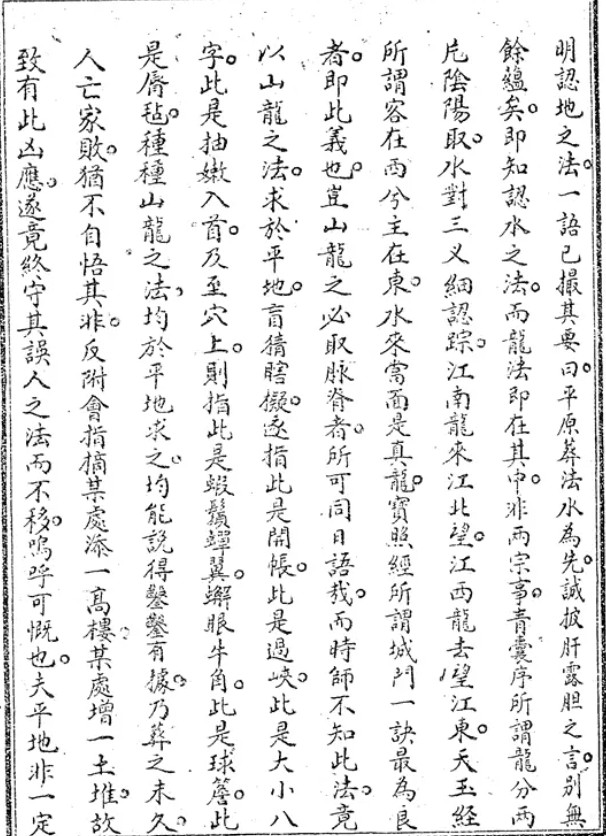 明認地之法。一語已撮其要曰平原葬法水為先。誠披肝露胆之言。別無
餘蘊矣。即知認水之法。而龍法即在其中。非兩宗事。青囊序所謂龍分兩
片陰陽取。水對三义細認踪。江南龍來江北望。江西龍去望江東。天玉經
所謂客在西兮主在東。水來當面是真龍。寶照經所謂城門一訣最為良
者。即此義也。豈山龍之必取脉脊者。所可同日語哉。而時師不知此法。竟
以山龍之法。求於平地。盲猜瞎擬。遂指此是開帳。此是過峽。此是大小八
字。此是抽嫩入首。及至穴上。則指此是蝦鬚蟬翼。蠏眼牛角。此是球簷。此
是唇毡。種種山龍之法。均於平地求之。均能說得鑿鑿有據。乃葬之未久。
人亡家敗。猶不自悟其非。反附會指摘某處添一高樓。某處增一土堆。故
致有此凶應。遂竟終守其誤人之法而不移。嗚呼可慨也。夫平地非一定